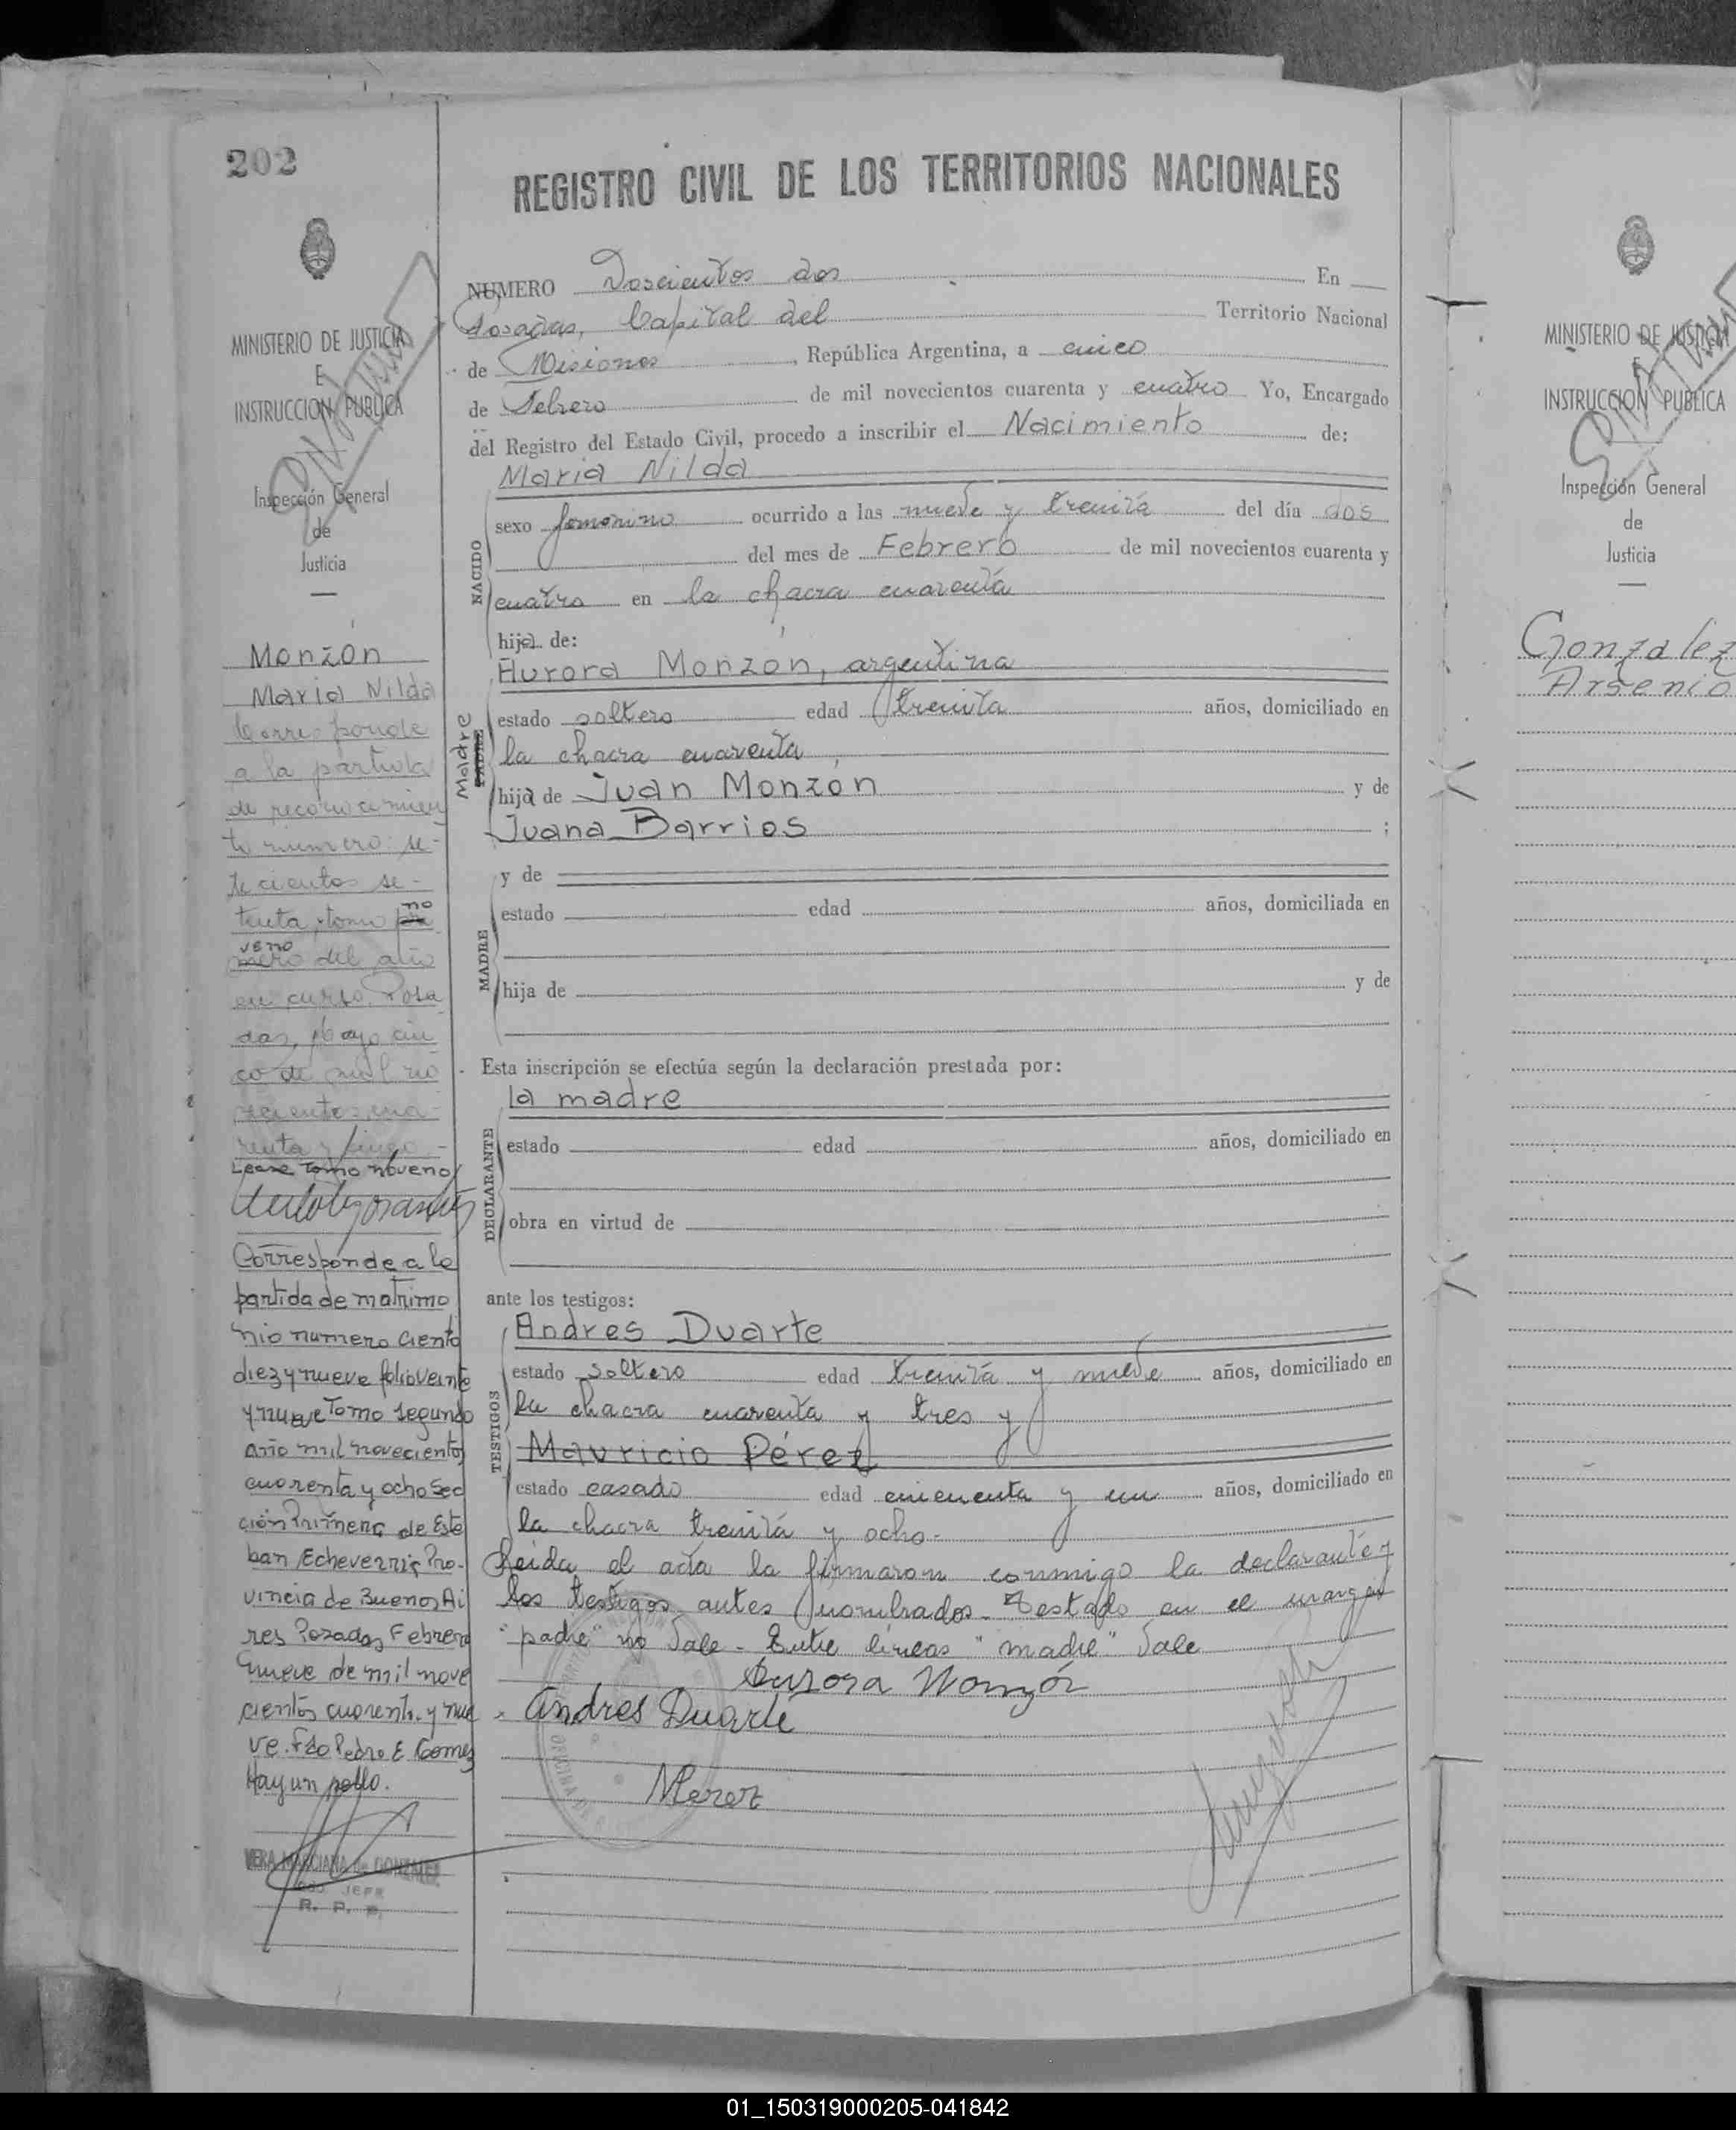 202
MINISTERIO DE JUSTICIA
E
INSTRUCCION PUBLICA
Inspección General
de
Justicia
Monzón
Maria Nilda
Corresponde
a la partida
de reconocimien
to numero: se-
tecientos se-
tenta, tomo pri no
mero veno del año
en curso. Posa
das, Mayo cin
co de mil no
vecientos cua-
renta y cinco
Lease Tomo noveno
Corresponde a la
partida de matrimo
nio numero ciento
diez y nueve folio veinte
y nueve Tomo segundo
año mil novecientos
cuarenta y ocho Sec
ción Primera de Este
ban Echeverria Pro-
vincia de Buenos Ai
res Posadas Febrero
nueve de mil nove
cientos cuarenta y nue
ve. Fdo Pedro E. Gomez
Hay un sello.
VERA MARCIANA de GONZALEZ
JEFE
R. P. P.
REGISTRO CIVIL DE LOS TERRITORIOS NACIONALES
NUMERO Doscientos dos En
Posadas, Capital del Territorio Nacional
de Misiones, República Argentina, a cinco
de Febrero de mil novecientos cuarenta y cuatro Yo, Encargado
del Registro del Estado Civil, procedo a inscribir el Nacimiento de:
Maria Nilda
NACIDO
sexo femenino ocurrido a las nueve y treinta del día dos
del mes de Febrero de mil novecientos cuarenta y
cuatro en la chacra cuarenta
hija de:
Aurora Monzón, argentina
Madre
PADRE
estado soltera edad treinta años, domiciliado en
la chacra cuarenta,
hija de Juan Monzón y de
Juana Barrios ;
y de
MADRE
estado edad años, domiciliada en
hija de y de
Esta inscripción se efectúa según la declaración prestada por:
la madre
DECLARANTE
estado edad años, domiciliado en
obra en virtud de
ante los testigos:
Andres Duarte
TESTIGOS
estado soltero edad treinta y nueve años, domiciliado en
la chacra cuarenta y tres y
Mauricio Pérez
estado casado edad cincuenta y un años, domiciliado en
la chacra treinta y ocho.-
Leida el acta la firmaron conmigo la declarante y
los testigos antes nombrados - Testado en el margen
"padre" no vale - Entre lineas "madre" vale
Aurora Monzón
Andres Duarte
MPerez
MINISTERIO DE JUSTICIA
E
INSTRUCCION PUBLICA
Inspección General
de
Justicia
Gonzalez
Arsenio
01_150319000205-041842